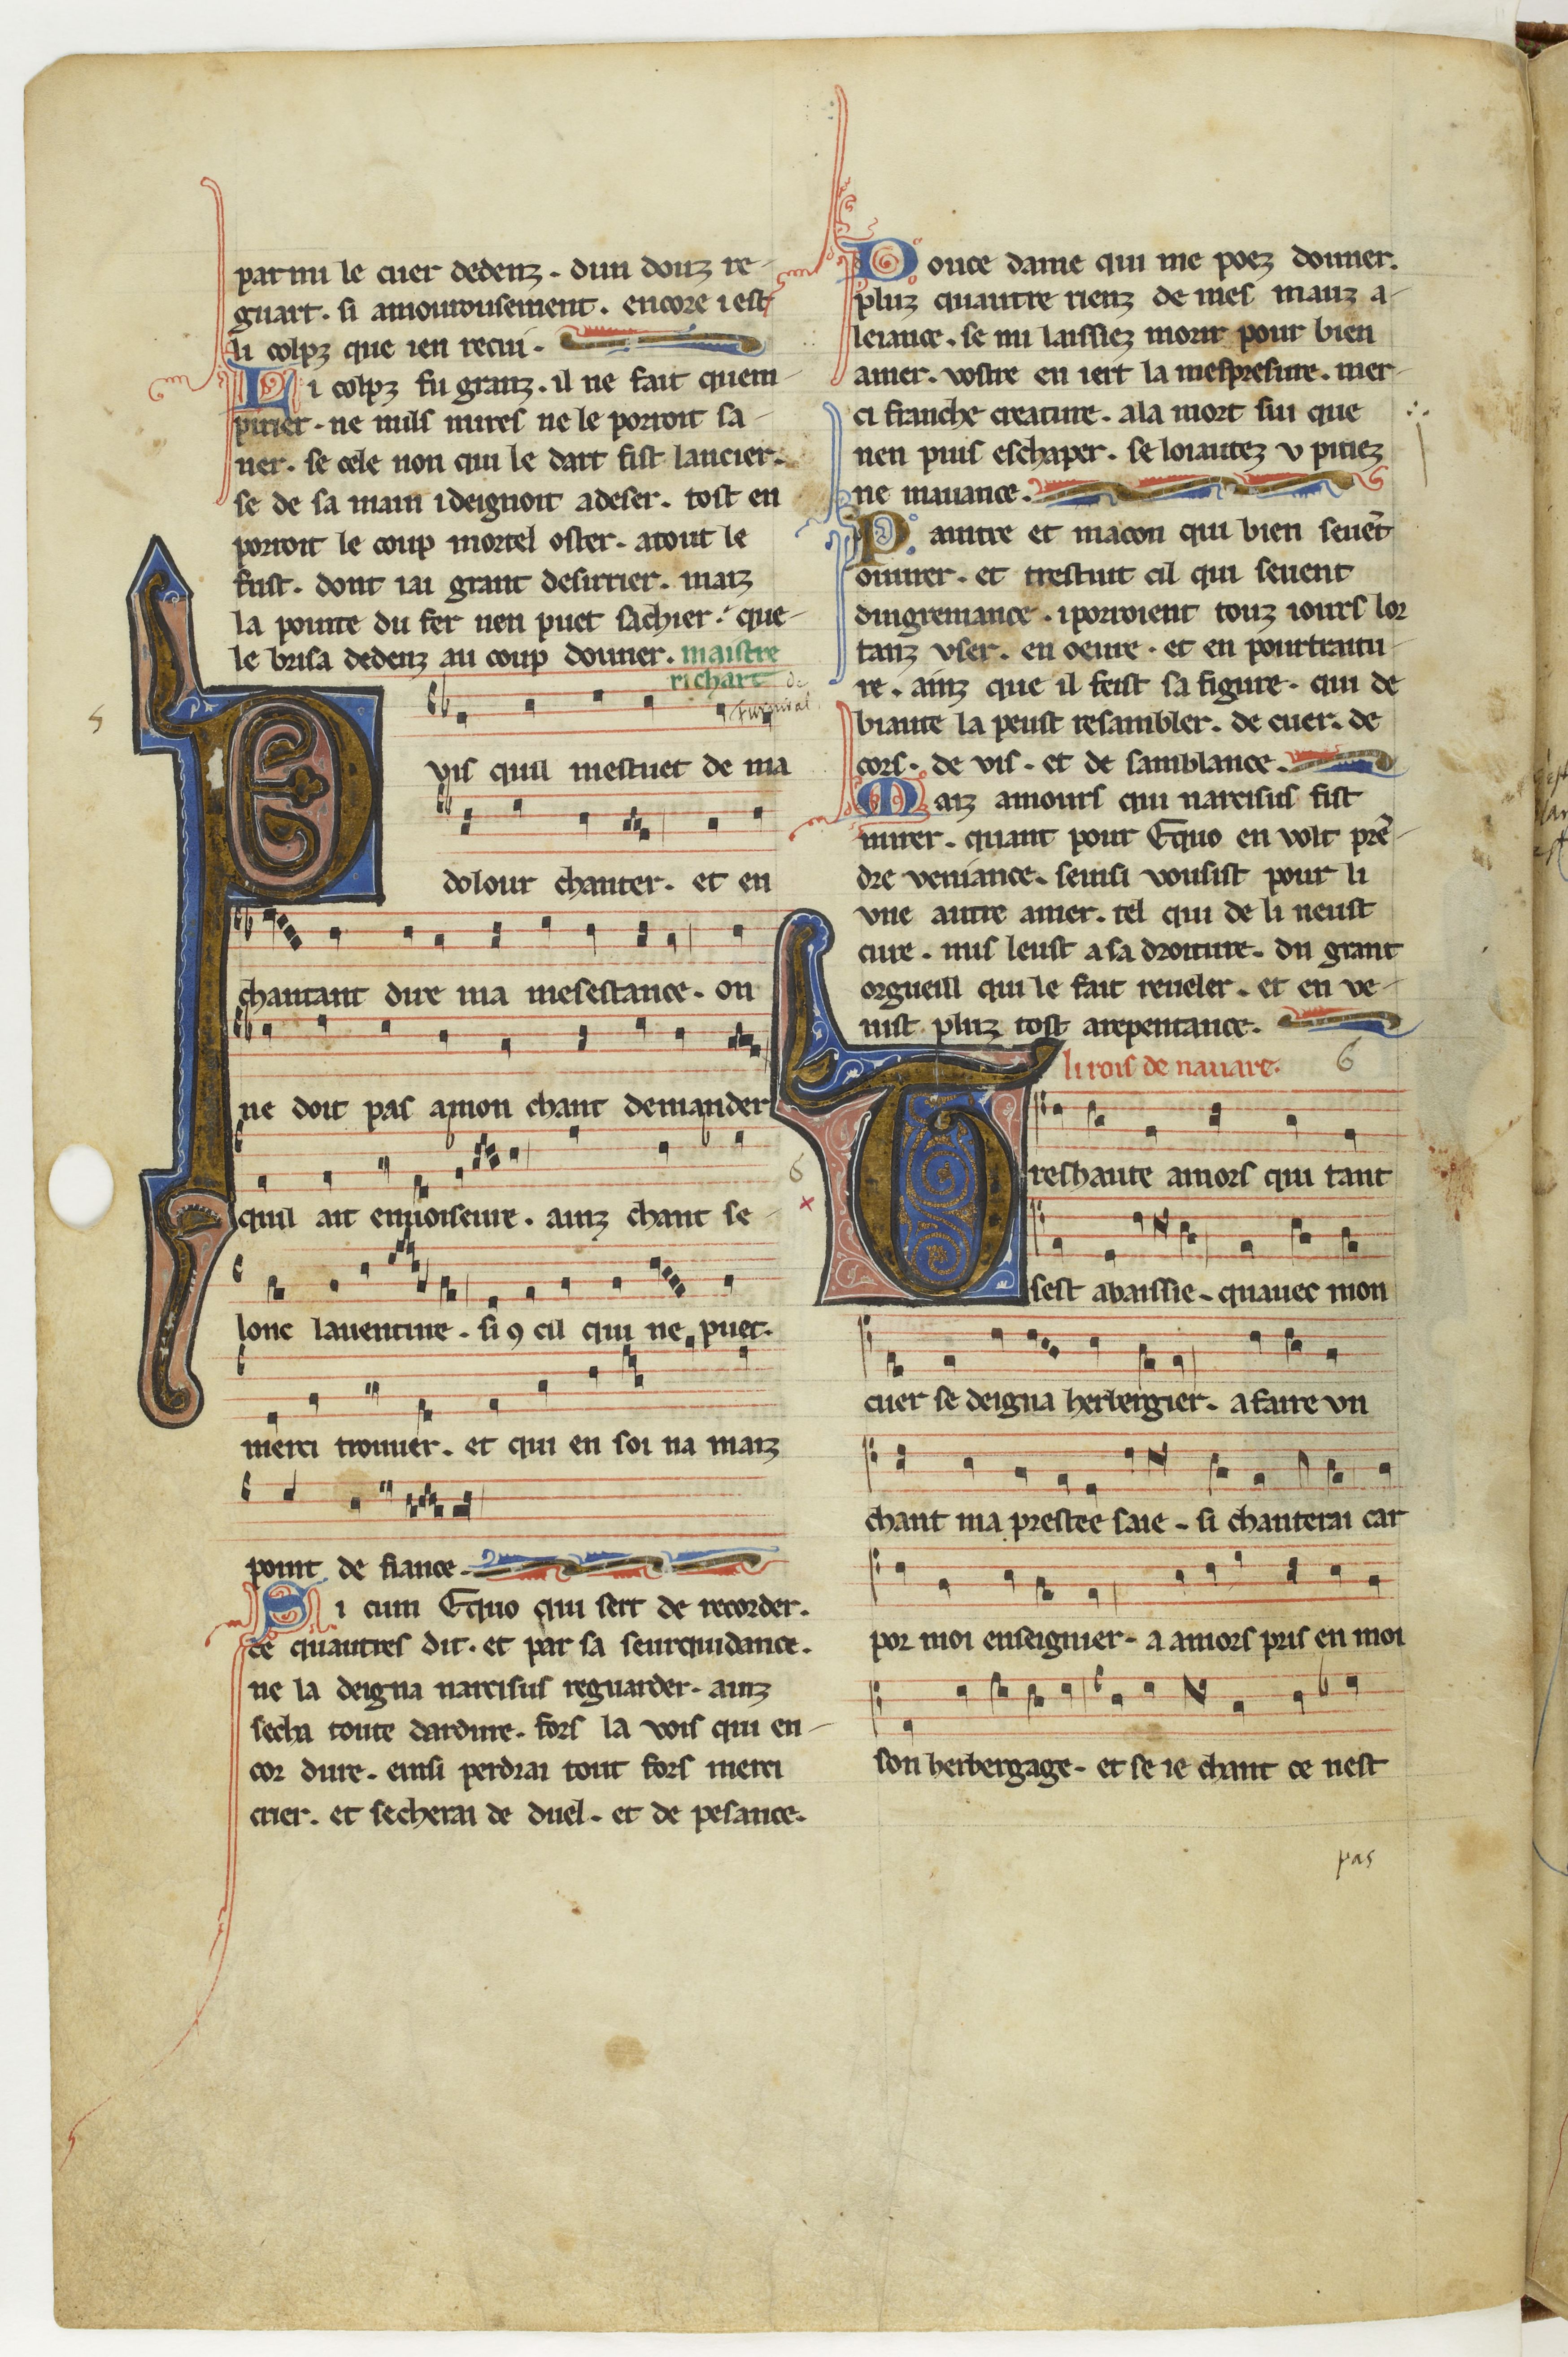 parmi le cuer dedenz. dun douz re-
guart. si amourousement. encore i est
li colpz que ien recui.
Li colpz fu granz. il ne fait quem-
pirier. ne nuls mires ne le porroit sa-
ner. se cele non qui le dart fist lancier.
se de sa main i deignoit adeser. tost en
porroit le coup mortel oster. atout le
fust. dont iai grant desirrier. maiz
la pointe du fer nen puet sachier. que-
le brisa dedenz au coup donner. maistre
richart de
furnival
5
Puis quil mestuet de ma
dolour chanter. et en
chantant dire ma mesestance. on
ne doit pas amon chant demander
quil ait enuoiseure. ainz chant se-
lonc lauenture. si ꝯ cil qui ne puet.
merci trouuer. et qui en soi na maiz
point de fiance.
Si cum Equo qui sert de recorder.
ce quautres dit. et par sa seurquidance.
ne la deigna narcisus reguarder. ainz
secha toute dardure. fors la vois qui en-
cor dure. einsi perdrai tout fors merci
crier. et secherai de duel. et de pesance.
Douce dame qui me poez donner.
pluz quautre rienz de mes mauz a-
leiance. se mi laissiez morir pour bien
amer. vostre en iert la mespresure. mer-
ci franche creature. ala mort sui que
nen puis eschaper. se loiautez v pitiez
ne mauance.
Paintre et macon qui bien seuẽt
ouurer. et trestuit cil qui seuent
dingremance. i porroient touz iours lor
tanz vser. en oeure. et en pourtraitu-
re. ainz que il feist sa figure. qui de
biaute la peust resambler. de cuer. de
cors. de vis. et de samblance.
Maiz amours qui narcisus fist
mirer. quant pour Equo en volt prẽ-
dre veniance. seinsi vousist pour li
vne autre amer. tel qui de li neust
cure. mis leust a sa droiture. du grant
orgueill qui le fait reueler. et en ve-
nist pluz tost arepentance.
li rois de nauare. 6
6
Treshaute amors qui tant
sest abaissie. quauec mon
cuer se deigna herbergier. a faire vn
chant ma prestee saie. si chanterai car
por moi enseignier. a amors pris en moi
son herbergage. et se ie chant ce nest
pas